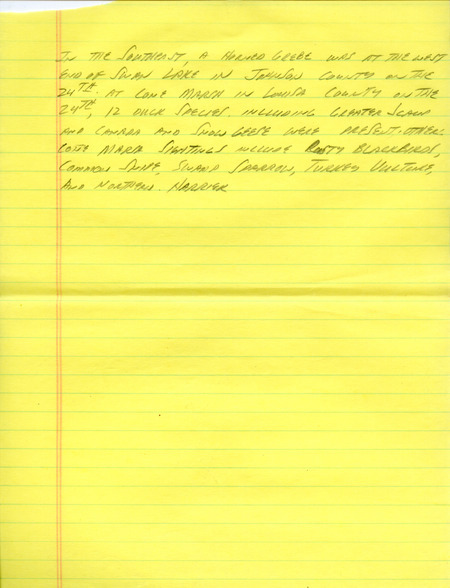 IN THE SOUTHEAST, A HORNED GREBE WAS AT THE WEST
END OF SWAN LAKE IN JOHNSON COUNTY ON THE
24TH. AT CONE MARSH IN LOUISA COUNTY ON THE
24TH, 12 DUCK SPECIES INCLUDING GREATER SCAUP
AND CANADA AND SNOW GEESE WERE PRESENT. OTHER
CONE MARSH SIGHTINGS INCLUDE RUSTY BLACKBIRDS,
COMMON SNIPE, SWAMP SPARROW, TURKEY VULTURE,
AND NORTHERN HARRIER